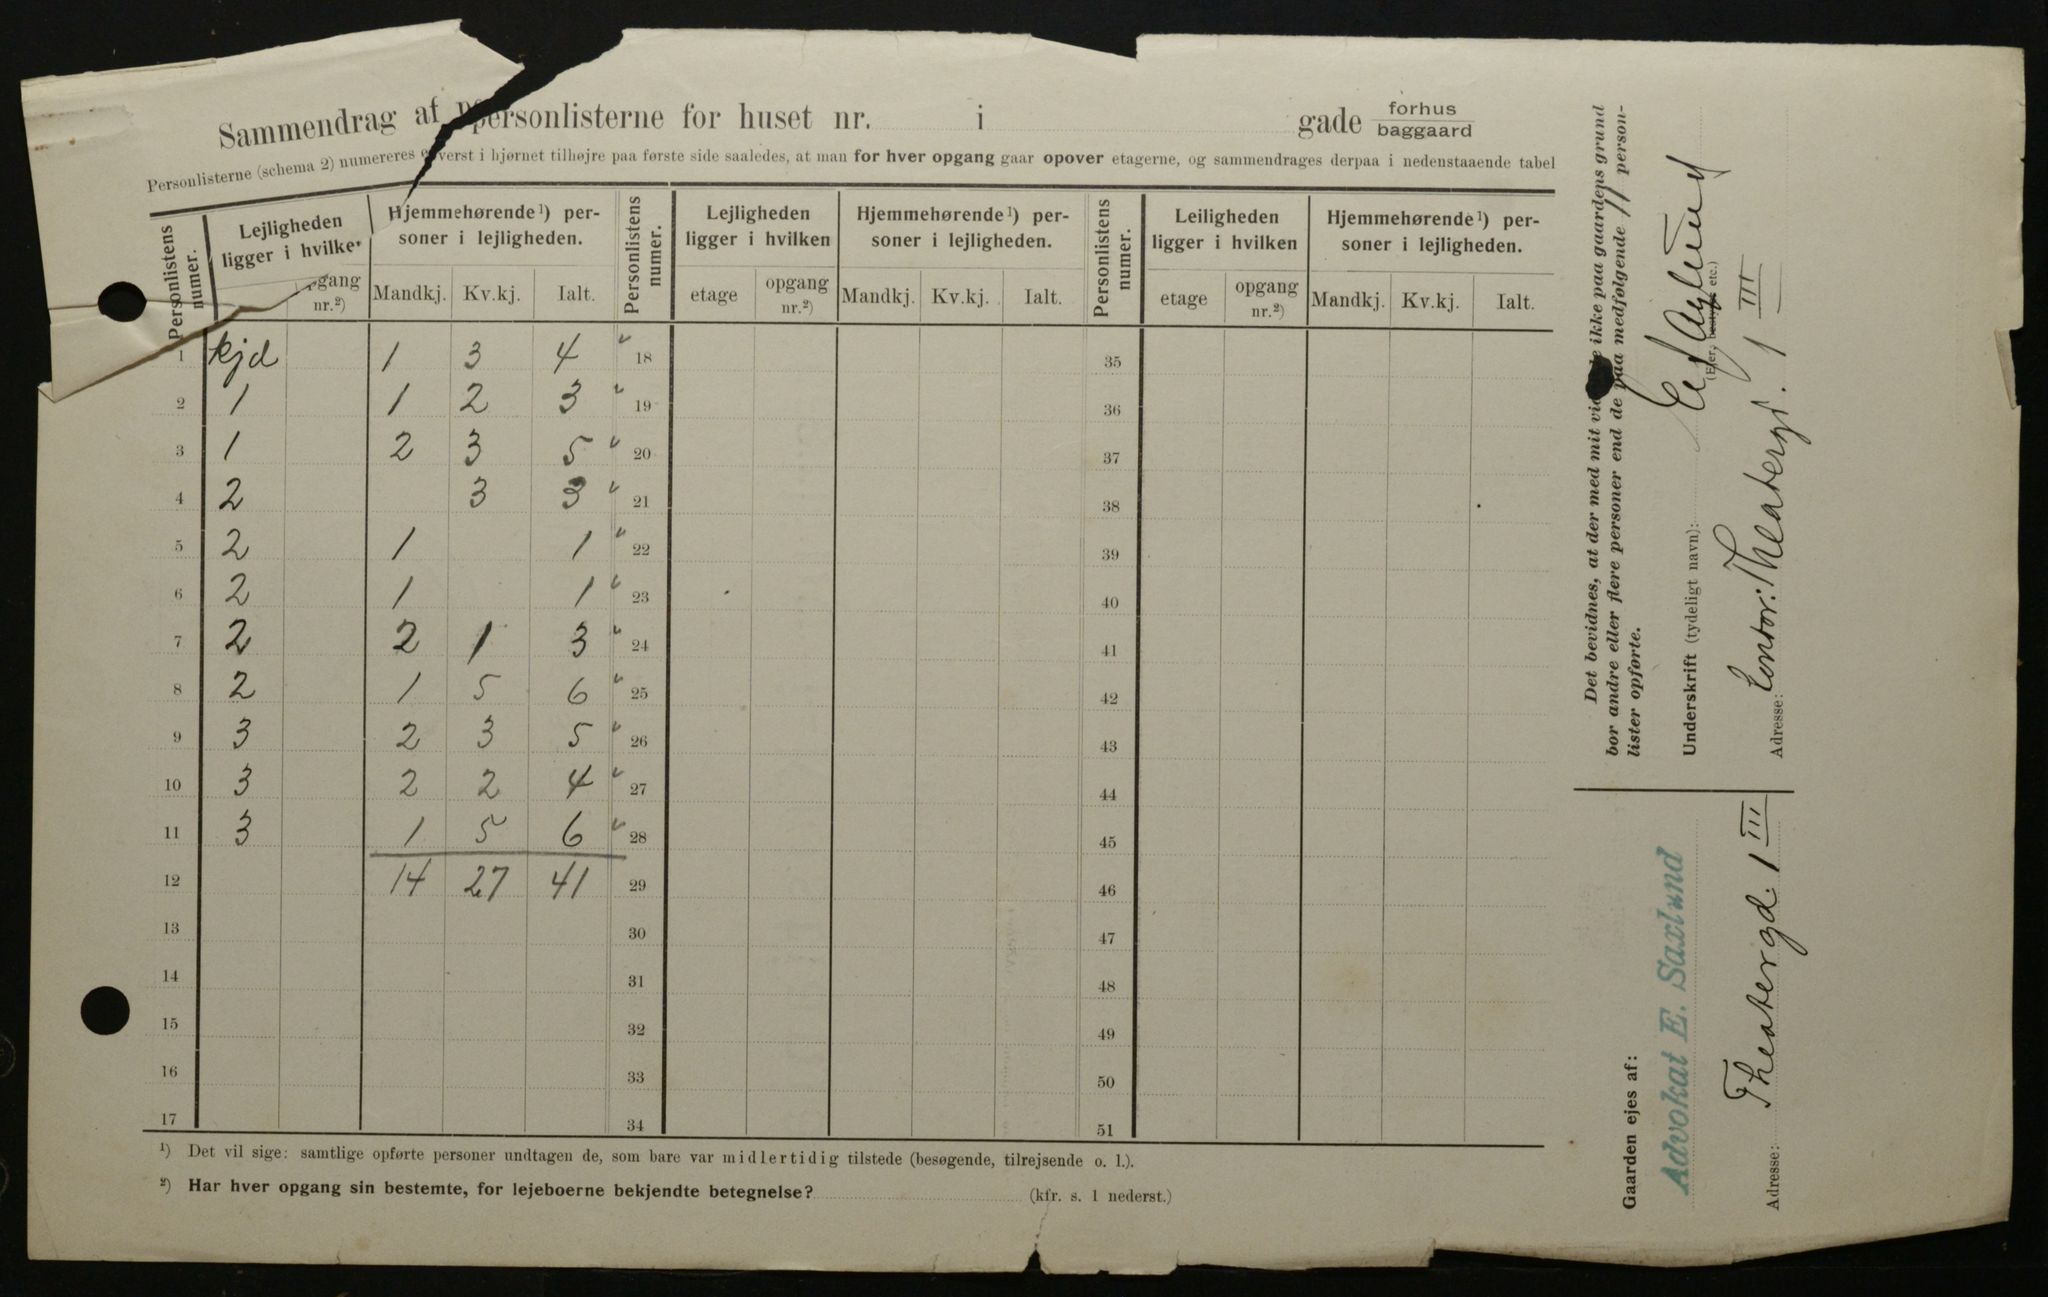 Sammendrag af personlisterne for huset nr. i gade forhus
baggaard
Personlisterne (schema 2) numereres øverst i hjørnet tilhøjre paa første side saaledes, at man for hver opgang gaar opover etagerne, og sammendrages derpaa i nedenstaaende tabel
Personlistens numer. Lejligheden ligger i hvilken opgang nr.²) Hjemmehørende¹) personer i lejligheden. Mandkj. Kv.kj. Ialt.
Personlistens numer. Lejligheden ligger i hvilken etage opgang nr.²) Hjemmehørende¹) personer i lejligheden. Mandkj. Kv.kj. Ialt.
Personlistens numer. Leiligheden ligger i hvilken etage opgang nr.²) Hjemmehørende¹) personer i lejligheden. Mandkj. Kv.kj. Ialt.
1 kjd 1 3 4 18 35
2 1 1 2 3 19 36
3 1 2 3 5 20 37
4 2 3 3 21 38
5 2 1 1 22 39
6 2 1 1 23 40
7 2 2 1 3 24 41
8 2 1 5 6 25 42
9 3 2 3 5 26 43
10 3 2 2 4 27 44
11 3 1 5 6 28 45
12 14 27 41 29 46
13 30 47
14 31 48
15 32 49
16 33 50
17 34 51
¹) Det vil sige: samtlige opførte personer undtagen de, som bare var midlertidig tilstede (besøgende, tilrejsende o. l.).
²) Har hver opgang sin bestemte, for lejeboerne bekjendte betegnelse? (kfr. s. 1 nederst.)
Det bevidnes, at der med mit vidende ikke paa gaardens grund
bor andre eller flere personer end de paa medfølgende 11 person-
lister opførte.
Underskrift (tydeligt navn): E Saxlund
(Ejer, bestyrer etc.)
Adresse: Contor: Theatergd. 1 III
Gaarden ejes af:
Advokat E. Saxlund
Adresse: Theatergd. 1 III